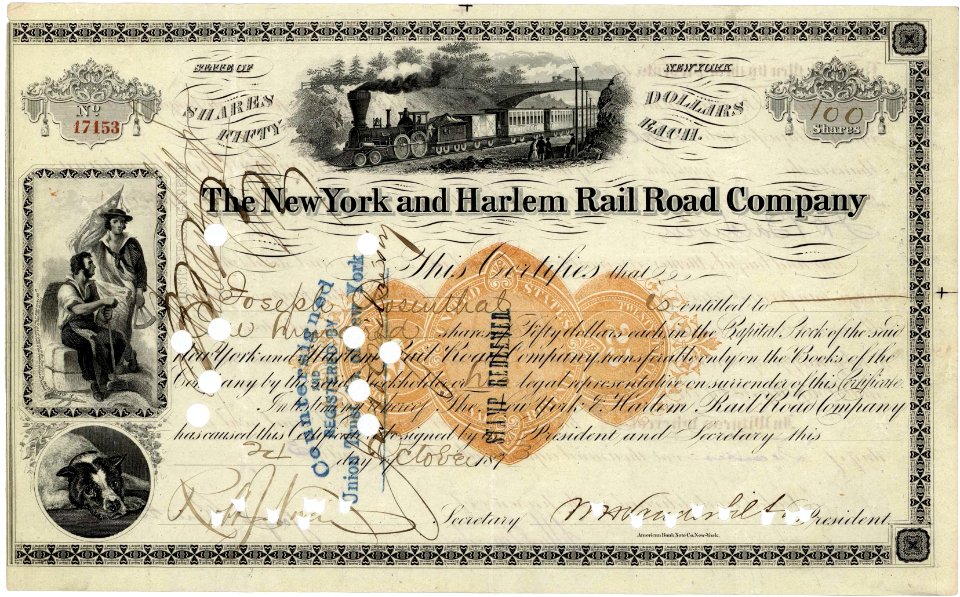 STATE OF NEW YORK
No 17153
SHARES FIFTY DOLLARS EACH.
100 Shares
The New York and Harlem Rail Road Company
This Certifies that
Joseph Rosenthal is entitled to
One hundred shares of Fifty dollars each in the Capital Stock of the said
New York and Harlem Rail Road Company transferable only on the Books of the
Company by the said Stockholder or his legal representative on surrender of this Certificate.
In witness whereof The New York & Harlem Rail Road Company
has caused this Certificate to be signed by its President and Secretary this
day of October 187
Secretary Wm H Vanderbilt President
American Bank Note Co. New-York.
Countersigned
AND
REGISTERED BY
Union Trust Co. of New York
STAMP REDEEMED